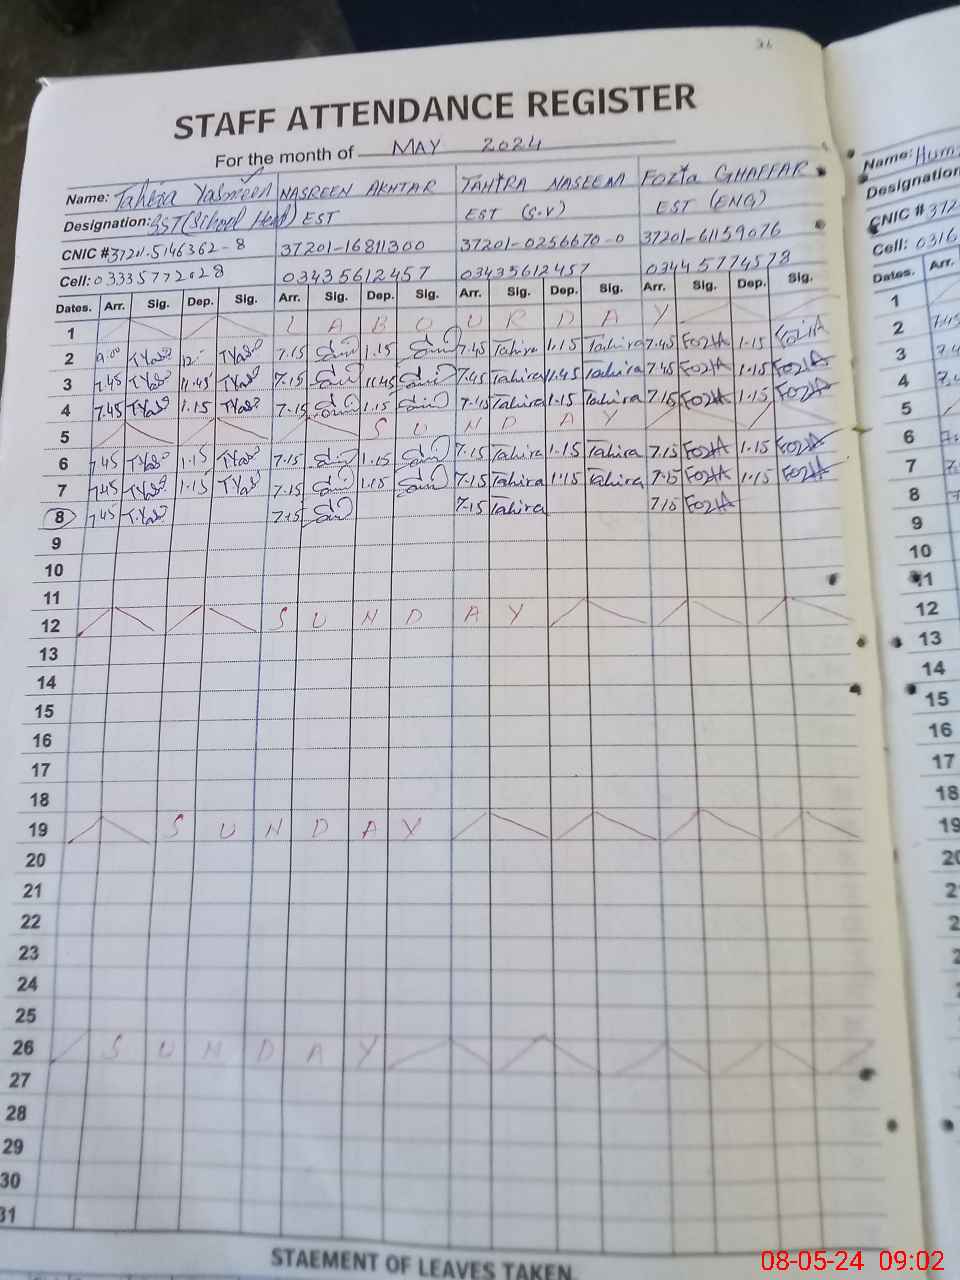 STAFF ATTENDANCE REGISTER
For the month of MAY 2024
Name: Tahira Yasmeen NASREEN AKHTAR TAHIRA NASEEM FoZia GHAFFAR Name:
Designation: SST (School Head) EST EST (S.V) EST (ENG) Designation
CNIC # 37201-5146362-8 37201-16811300 37201-0256670-0 37201-61159076 CNIC # 372
Cell: 03335772028 03435612457 03435612457 03445774578 Cell: 0316
Dates. Arr. Sig. Dep. Sig. Arr. Sig. Dep. Sig. Arr. Sig. Dep. Sig. Arr. Sig. Dep. Sig. Dates. Arr.
1 L A B O U R D A Y 1
2 9.00 TYas 12 TYas 7.15 1.15 7.45 Tahira 1.15 Tahira 7.45 FoziA 1.15 FoziA 2
3 7.45 TYas 11.45 TYas 7.15 11.45 7.45 Tahira 11.45 Tahira 7.45 FoziA 1.15 FoziA 3
4 7.45 TYas 1.15 TYas 7.15 1.15 7.15 Tahira 1.15 Tahira 7.15 FoziA 1.15 FoziA 4
5 S U N D A Y 5
6 7.45 TYas 1.15 TYas 7.15 1.15 7.15 Tahira 1.15 Tahira 7.15 FoziA 1.15 FoziA 6
7 7.45 TYas 1.15 TYas 7.15 1.15 7.15 Tahira 1.15 Tahira 7.15 FoziA 1.15 FoziA 7
8 7.45 T.Yas 7.15 7.15 Tahira 7.15 FoziA 8
9 9
10 10
11 11
12 S U N D A Y 12
13 13
14 14
15 15
16 16
17 17
18 18
19 S U N D A Y 19
20 20
21 21
22
23
24
25
26 S U N D A Y
27
28
29
30
31
STAEMENT OF LEAVES TAKEN
08-05-24 09:02